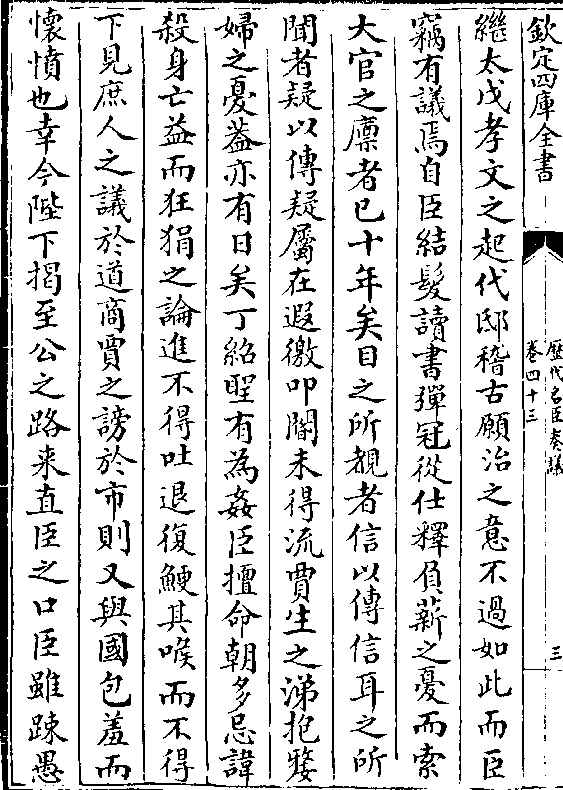 欽定四庫全書
歷代名臣奏議
卷四十三
三
繼太戊孝文之起代邸稽古願治之意不過如此而臣
竊有議焉自臣結髮讀書彈冠從仕釋負薪之憂而索
大官之廩者已十年矣目之所覩者信以傳信耳之所
聞者疑以傳疑屬在遐徼叩閽未得流賈生之涕抱嫠
婦之憂葢亦有日矣丁紹聖有為姦臣擅命朝多忌諱
殺身亡益而狂狷之論進不得吐退復鯁其喉而不得
下見庶人之議於道商賈之謗於市則又與國包羞而
懷憤也幸今陛下掲至公之路来直臣之口臣雖踈愚